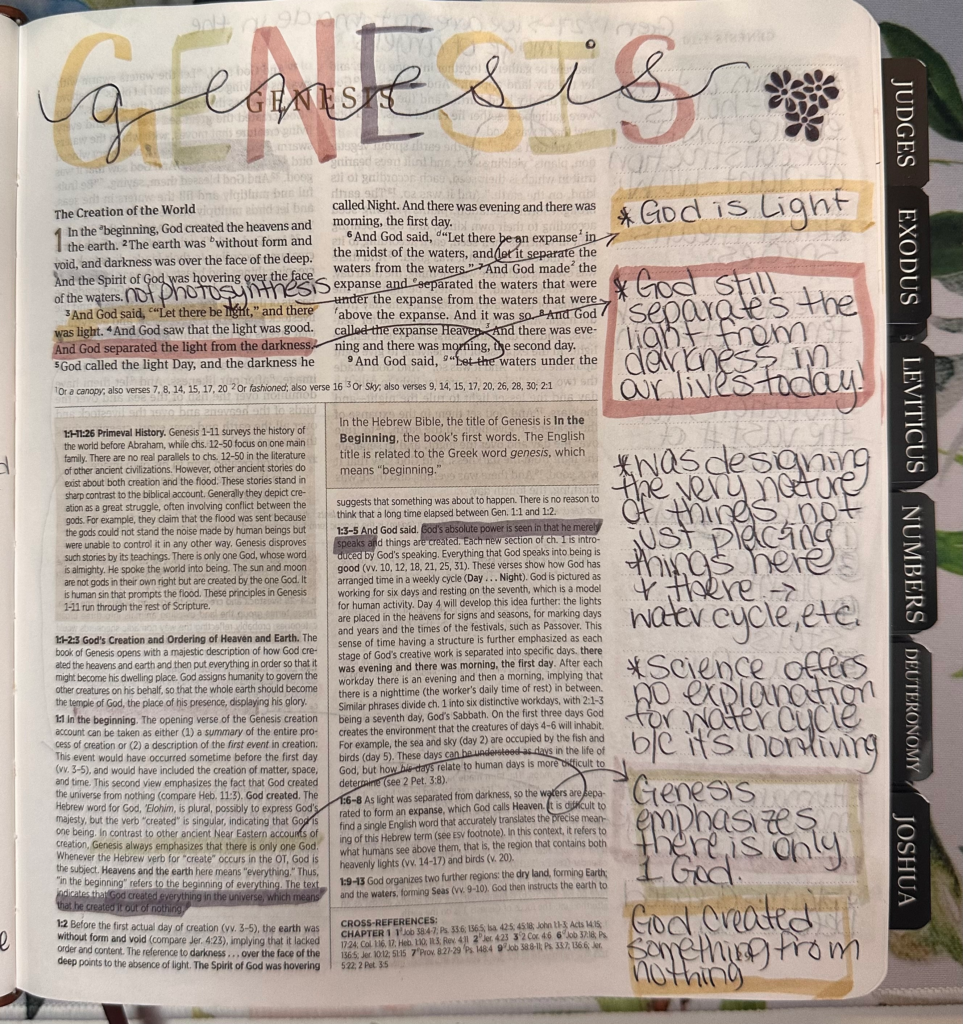 GENESIS
genesis
GENESIS
The Creation of the World
1 In the ᵃbeginning, God created the heavens and
the earth. ²The earth was ᵇwithout form and
void, and darkness was over the face of the deep.
And the Spirit of God was hovering over the face
of the waters.
not photosynthesis
³And God said, ᶜ“Let there be light,” and there
was light. ⁴And God saw that the light was good.
And God separated the light from the darkness.
⁵God called the light Day, and the darkness he
called Night. And there was evening and there was
morning, the first day.
⁶And God said, ᵈ“Let there be an expanse¹ in
the midst of the waters, and let it separate the
waters from the waters.” ⁷And God made² the
expanse and ᵉseparated the waters that were
under the expanse from the waters that were
ᶠabove the expanse. And it was so. ⁸And God
called the expanse Heaven.³ And there was eve-
ning and there was morning, the second day.
⁹And God said, ᵍ“Let the waters under the
¹Or a canopy; also verses 7, 8, 14, 15, 17, 20 ²Or fashioned; also verse 16 ³Or Sky; also verses 9, 14, 15, 17, 20, 26, 28, 30; 2:1
1:1–11:26 Primeval History. Genesis 1–11 surveys the history of
the world before Abraham, while chs. 12–50 focus on one main
family. There are no real parallels to chs. 12–50 in the literature
of other ancient civilizations. However, other ancient stories do
exist about both creation and the flood. These stories stand in
sharp contrast to the biblical account. Generally they depict cre-
ation as a great struggle, often involving conflict between the
gods. For example, they claim that the flood was sent because
the gods could not stand the noise made by human beings but
were unable to control it in any other way. Genesis disproves
such stories by its teachings. There is only one God, whose word
is almighty. He spoke the world into being. The sun and moon
are not gods in their own right but are created by the one God. It
is human sin that prompts the flood. These principles in Genesis
1–11 run through the rest of Scripture.
1:1–2:3 God's Creation and Ordering of Heaven and Earth. The
book of Genesis opens with a majestic description of how God cre-
ated the heavens and earth and then put everything in order so that it
might become his dwelling place. God assigns humanity to govern the
other creatures on his behalf, so that the whole earth should become
the temple of God, the place of his presence, displaying his glory.
1:1 In the beginning. The opening verse of the Genesis creation
account can be taken as either (1) a summary of the entire pro-
cess of creation or (2) a description of the first event in creation.
This event would have occurred sometime before the first day
(vv. 3–5), and would have included the creation of matter, space,
and time. This second view emphasizes the fact that God created
the universe from nothing (compare Heb. 11:3). God created. The
Hebrew word for God, 'Elohim, is plural, possibly to express God's
majesty, but the verb “created” is singular, indicating that God is
one being. In contrast to other ancient Near Eastern accounts of
creation, Genesis always emphasizes that there is only one God.
Whenever the Hebrew verb for “create” occurs in the OT, God is
the subject. Heavens and the earth here means “everything.” Thus,
“in the beginning” refers to the beginning of everything. The text
indicates that God created everything in the universe, which means
that he created it out of nothing.
1:2 Before the first actual day of creation (vv. 3–5), the earth was
without form and void (compare Jer. 4:23), implying that it lacked
order and content. The reference to darkness . . . over the face of the
deep points to the absence of light. The Spirit of God was hovering
In the Hebrew Bible, the title of Genesis is In the
Beginning, the book's first words. The English
title is related to the Greek word genesis, which
means “beginning.”
suggests that something was about to happen. There is no reason to
think that a long time elapsed between Gen. 1:1 and 1:2.
1:3–5 And God said. God's absolute power is seen in that he merely
speaks and things are created. Each new section of ch. 1 is intro-
duced by God's speaking. Everything that God speaks into being is
good (vv. 10, 12, 18, 21, 25, 31). These verses show how God has
arranged time in a weekly cycle (Day . . . Night). God is pictured as
working for six days and resting on the seventh, which is a model
for human activity. Day 4 will develop this idea further: the lights
are placed in the heavens for signs and seasons, for marking days
and years and the times of the festivals, such as Passover. This
sense of time having a structure is further emphasized as each
stage of God's creative work is separated into specific days. there
was evening and there was morning, the first day. After each
workday there is an evening and then a morning, implying that
there is a nighttime (the worker's daily time of rest) in between.
Similar phrases divide ch. 1 into six distinctive workdays, with 2:1–3
being a seventh day, God's Sabbath. On the first three days God
creates the environment that the creatures of days 4–6 will inhabit.
For example, the sea and sky (day 2) are occupied by the fish and
birds (day 5). These days can be understood as days in the life of
God, but how his days relate to human days is more difficult to
determine (see 2 Pet. 3:8).
1:6–8 As light was separated from darkness, so the waters are sepa-
rated to form an expanse, which God calls Heaven. It is difficult to
find a single English word that accurately translates the precise mean-
ing of this Hebrew term (see ESV footnote). In this context, it refers to
what humans see above them, that is, the region that contains both
heavenly lights (vv. 14–17) and birds (v. 20).
1:9–13 God organizes two further regions: the dry land, forming Earth;
and the waters, forming Seas (vv. 9–10). God then instructs the earth to
CROSS-REFERENCES:
CHAPTER 1
* God is Light
* God still
separates the
light from
darkness in
our lives today!
*was designing
the very nature
of things, not
just placing
things here
+ there →
water cycle, etc.
*Science offers
no explanation
for water cycle
b/c it's nonliving
Genesis
emphasizes
there is only
1 God.
God created
something from
nothing
JUDGES
EXODUS
LEVITICUS
NUMBERS
DEUTERONOMY
JOSHUA